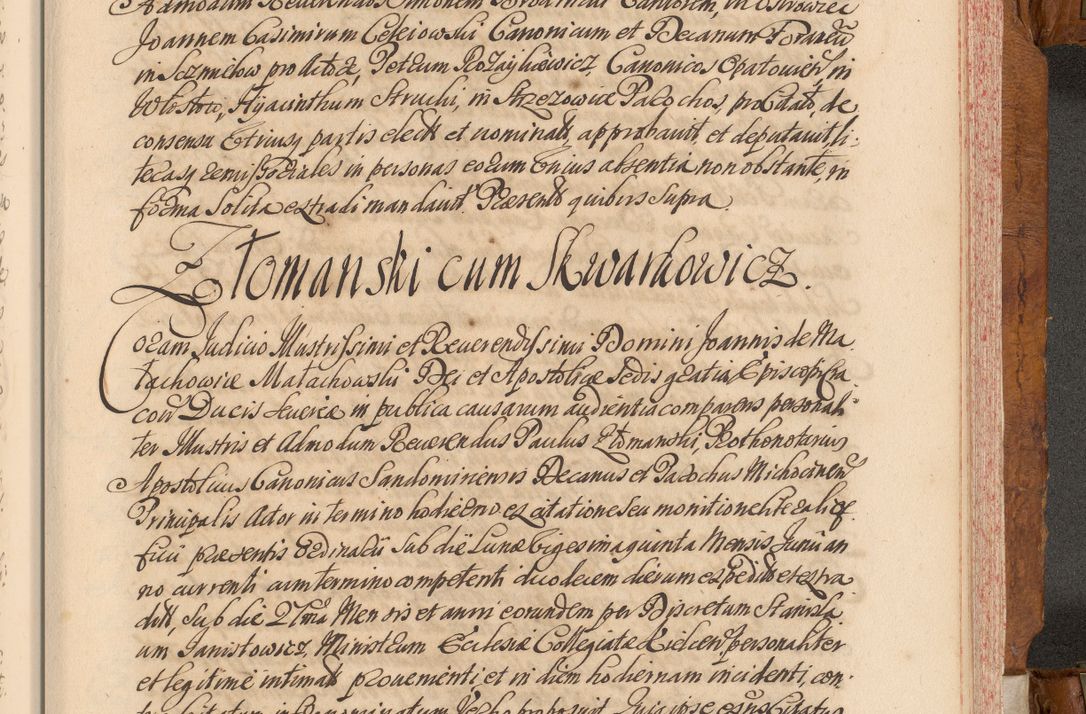 Admodum Reverendos Simonem Canonicum Cantorem, in Ostrowiec
Joannem Casimirum Cefeiowski Canonicum et Decanum Foraneū
in Petrum Canonicos Opatovien in
Hyacinthum Struchi, in Strzezowice Parochos, de
consensu utriusq partis elect et nominat, approbavit, et deputavit, li-
terasq remissoriales in personas eorum unius absentia non obstante, in
forma solita extradi mandavit. Præsent quibus supra.
Złomanski cum Skwarkowicz.
Coram Judicio Illustrissimi et Reverendissimi Domini Joannis de Ma
łachowice Małachowski Dei et Apostolicæ Sedis gratia Episcopi Cra
cov Ducis Severiæ in publica causarum audientia comparens personali-
ter Illustris et Admodum Reverendus Paulus Złomanski, Prothonotarius
Apostolicus Canonicus Sandomiriensis Decanus et Parochus Michocinen
Principalis Actor in termino hodierno ex citatione seu monitione literali of
ficii præsentis ordinarii sub die Lunæ vigesima quinta Mensis Junii an
no currenti cum termino competenti duodecem dierum expedit et extra
dit, sub die 27ma Mensis et anni eorundem per Discretum Stanisla
um Janistowicz, Ministrum Ecclesiæ Collegiatæ Kielcen personaliter
et legitime intimat proveniente, et in diem hodiernam incidenti, con-
in Jesho proposuit.